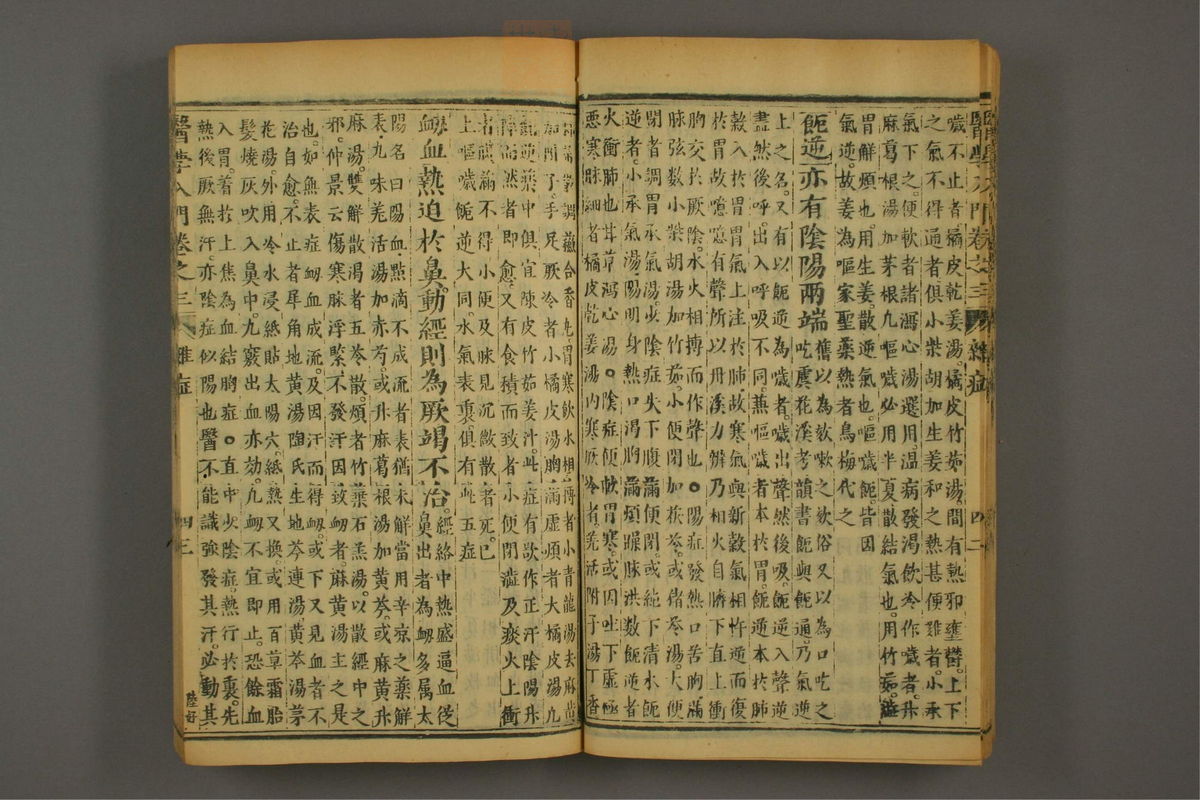 醫學入門卷之三 雜症 四二
噦不止者橘皮乾姜湯橘皮竹茹湯間有熱邪壅鬱上下
之氣不得通者俱小柴胡加生姜和之熱甚便難者小承
氣下之便軟者諸瀉心湯選用溫病發渴飲冷作噦者升
麻葛根湯加茅根凡嘔噦必用半夏散結氣也用竹茹溢
胃解煩也用生姜散逆氣也嘔噦皆因
氣逆故姜為嘔家聖藥熱者烏梅代之
飹逆亦有陰陽兩端舊以為欬嗽之欬俗又以為口吃之
吃虞花溪考韻書飹與飹通乃氣逆
上之名又有以飹逆為噦者噦出聲然後吸飹逆入聲逆
盡然後呼出入呼吸不同蕪嘔噦者本於胃飹逆本於肺
穀入於胃胃氣上注於肺故寒氣與新穀氣相忤逆而復
於胃故噫噫有聲所以丹溪力辨乃相火自臍下直上衝
胸交於厥陰水火相摶而作聲也○陽症發熱口苦胸滿
脉弦數小柴胡湯加竹茹小便閉加茯苓或猪苓湯大便
閉者調胃承氣湯少陰症失下腹滿便閉或純下清水飹
逆者小承氣湯陽明身熱口渴胸滿煩躁脉洪數飹逆者
火衝肺也甘草瀉心湯○陰症軟胃寒或因吐下虛極
惡寒脉細者橘皮乾姜湯內寒厥冷者羌活附子湯丁香
加附了手足厥冷者小橘皮湯胸滿虛煩者大橘皮湯凡
飹逆藥中俱宜陳皮竹茹姜汁此症有欲作正汗陰陽升
降怫然者即愈又有食積而致者小便閉溢及痰火上衝
者臟滿不得小便及脉見沉微散者死已
上嘔噦飹逆大同水氣表裏俱有此五症
衂血熱迫於鼻動經則為厥竭不治經絡中熱盛逼血從
鼻出者為衂多属太
陽名曰陽血點滴不成流者表猶未解當用辛凉之藥解
表九味羌活湯加赤芍或升麻葛根湯加黃芩或麻黃升
麻湯雙解散渴者五苓散煩者竹葉石羔湯以散經中之
邪仲景云傷寒脉浮緊不發汗因致衂者麻黃湯主之是
也如無表症衂血成流及因汗而得衂或下又見血者不
治自愈不止者犀角地黃湯陶氏生地芩連湯黃芩湯茅
花湯外用冷水浸紙貼太陽穴紙熱又換或用百草霜胎
髮燒灰吹入鼻中九竅出血亦効凡衂不宜即止恐餘血
入胃着於上焦為血結胸症○直中少陰症熱行於裏先
熱後厥無汗亦陰症似陽也醫不能識強發其汗必動其
醫學入門卷之三 雜症 四三
陸好